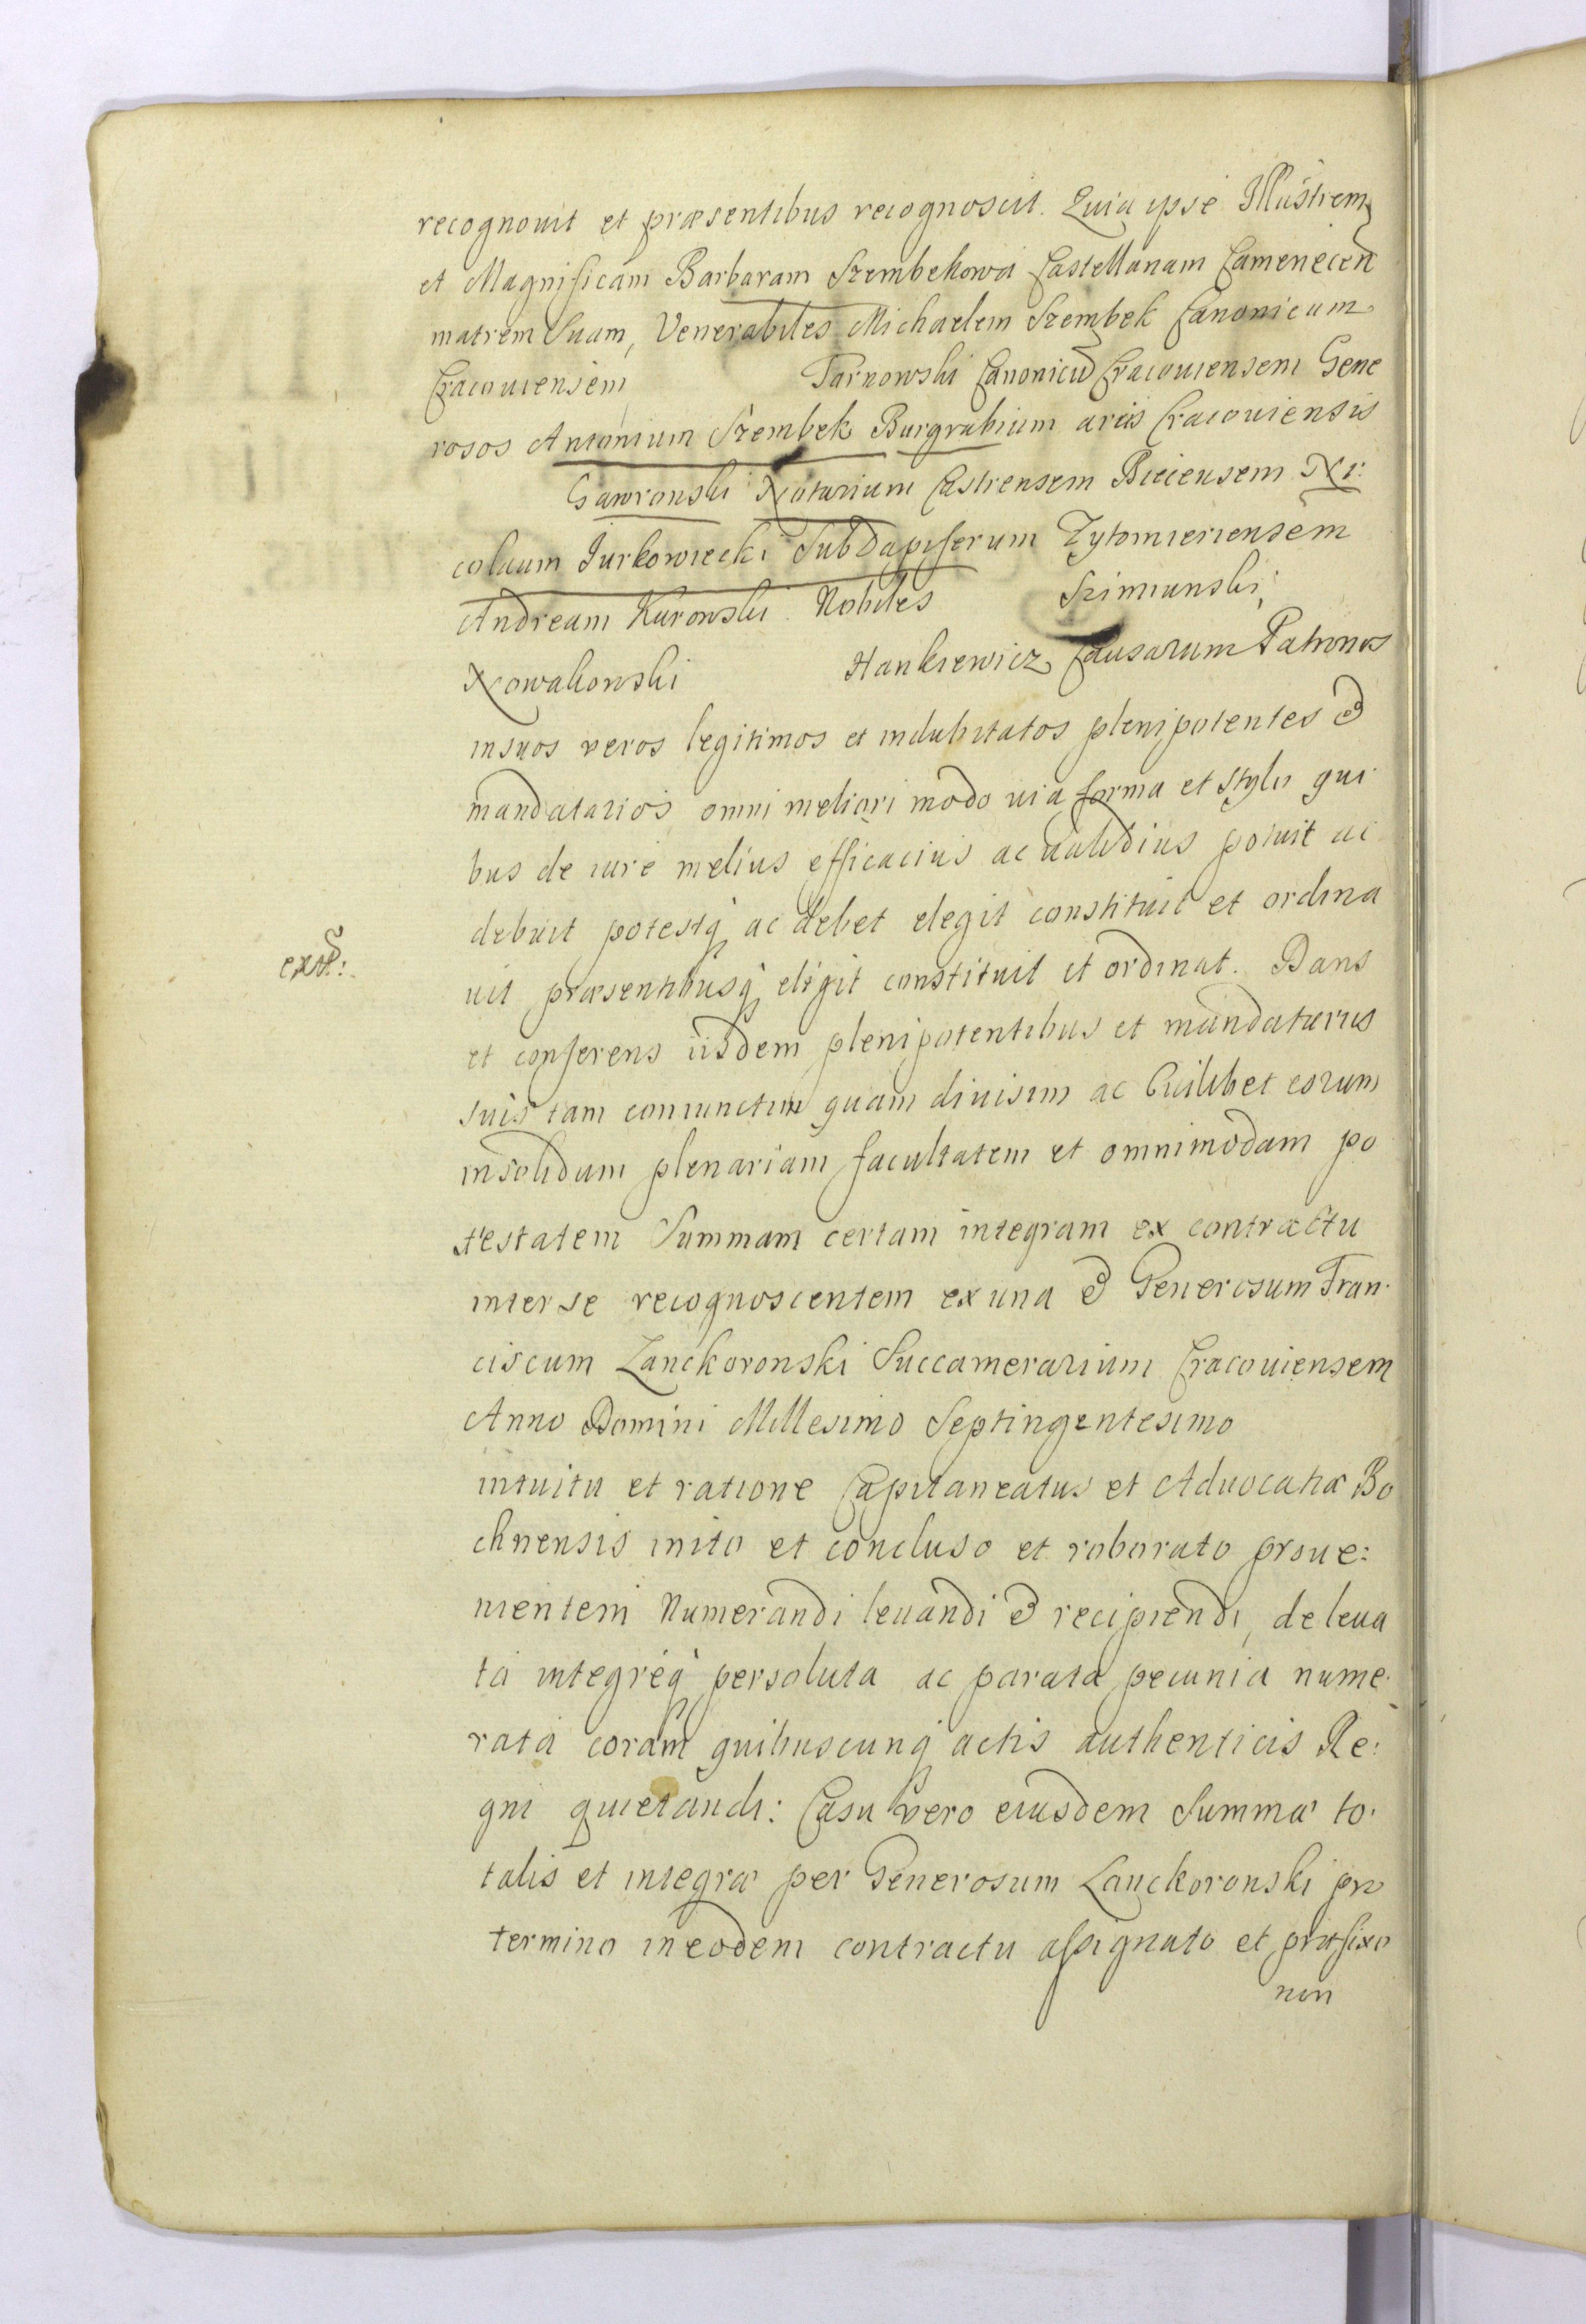 recognovit et præsentibus recognoscit. Quia ipse Illustrem
et Magnificam Barbaram Szembekowa Castellanam Camenecen
matrem Suam, Venerabiles Michaelem Szembek Canonicum
Cracouiensem Tarnowski Canonicu Cracouiensem Gene
rosos Antonium Szembek Burgrabium arcis Cracouiensis
Gawronski Notarium Castrensem Biecensem Ni:
colaum Jurkowiecki Subdapiferum Zytomieriensem
Andream Kurowski Nobiles Szimianski,
Nowakowski Hankiewicz Causarum Patronos
in suos veros legitimos et indubitatos plenipotentes &
mandatarios omni meliori modo via forma et stylo qui
bus de iure melius efficacius ac validius potuit ac
debuit potestq ac debet elegit constituit et ordina
exst:
uit præsentibusq eligit constituit et ordinat. Dans
et conferens iisdem plenipotentibus et mandatariis
suis tam coniunctim quam diuisim ac Cuilibet eorum
in solidum plenariam facultatem et omnimodam po
testatem Summam certam integram ex contractu
inter se recognoscentem ex una & Generosum Fran:
ciscum Lanckoronski Succamerarium Cracouiensem
Anno Domini Millesimo Septingentesimo
intuitu et ratione Capitaneatus et Aduocatiæ Bo
chnensis inito et concluso et roborato proue:
nientem Numerandi leuandi & recipiendi, de leua
ta integréq persoluta ac parata pecunia nume:
rata coram quibuscunq actis authenticis Re:
gni quietandi: Casu vero eiusdem Summæ to:
talis et integræ per Generosum Lanckoronski pro
termino in eodem contractu assignato et præfixo
non